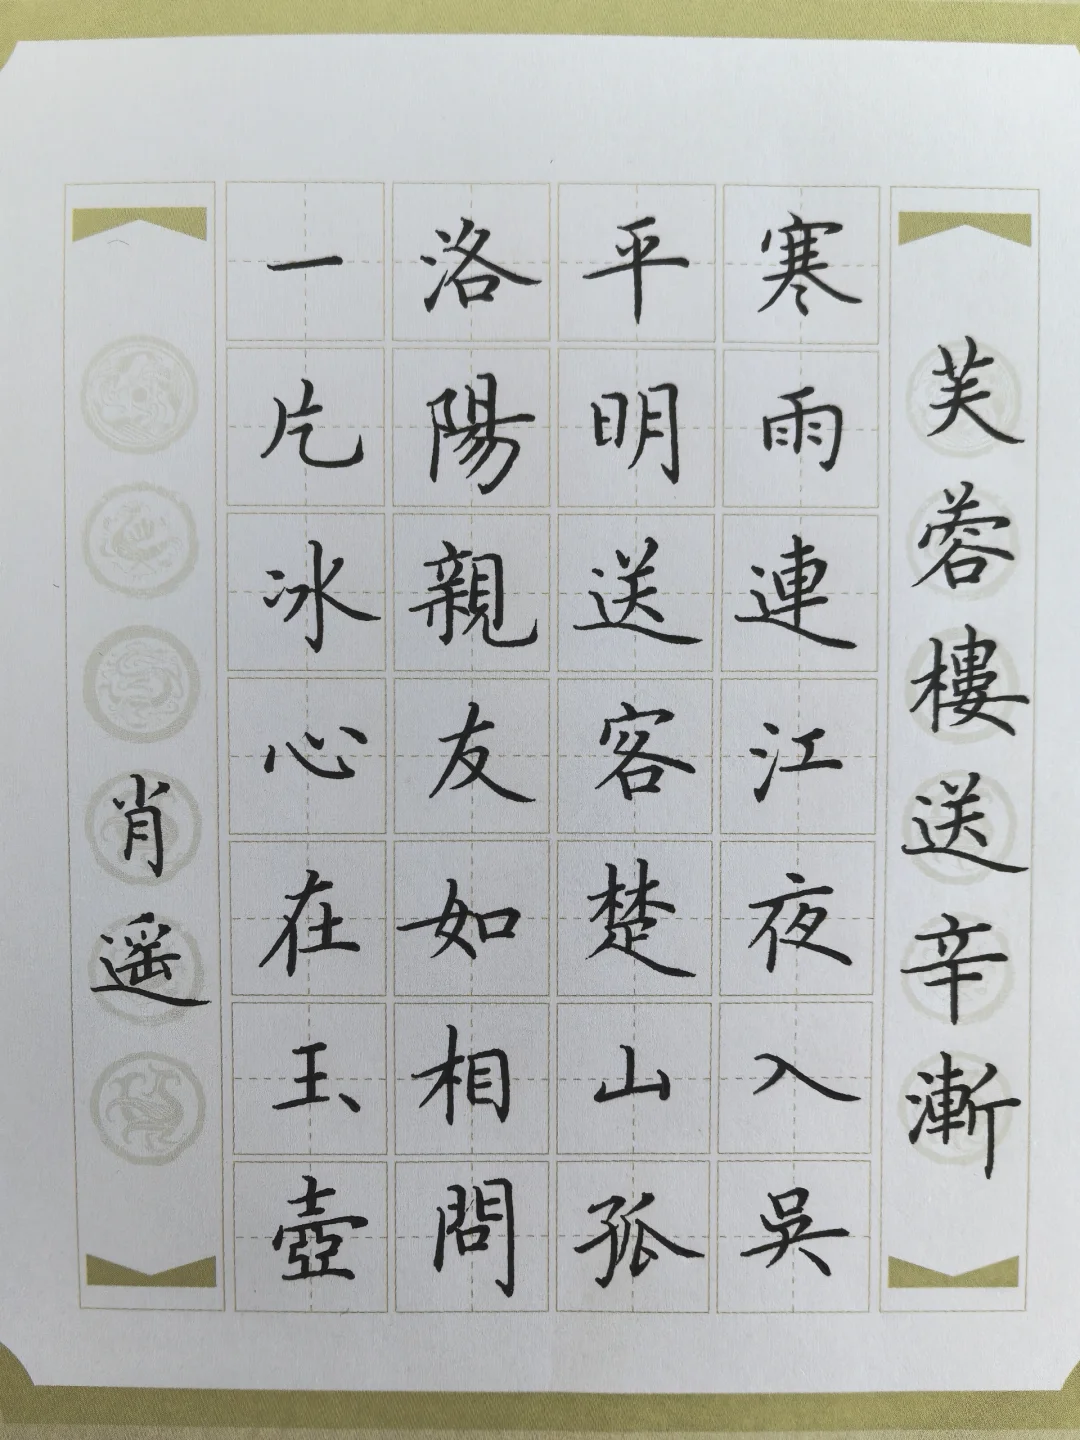 芙蓉樓送辛漸
寒雨連江夜入吳
平明送客楚山孤
洛陽親友如相問
一片冰心在玉壺
肖遥